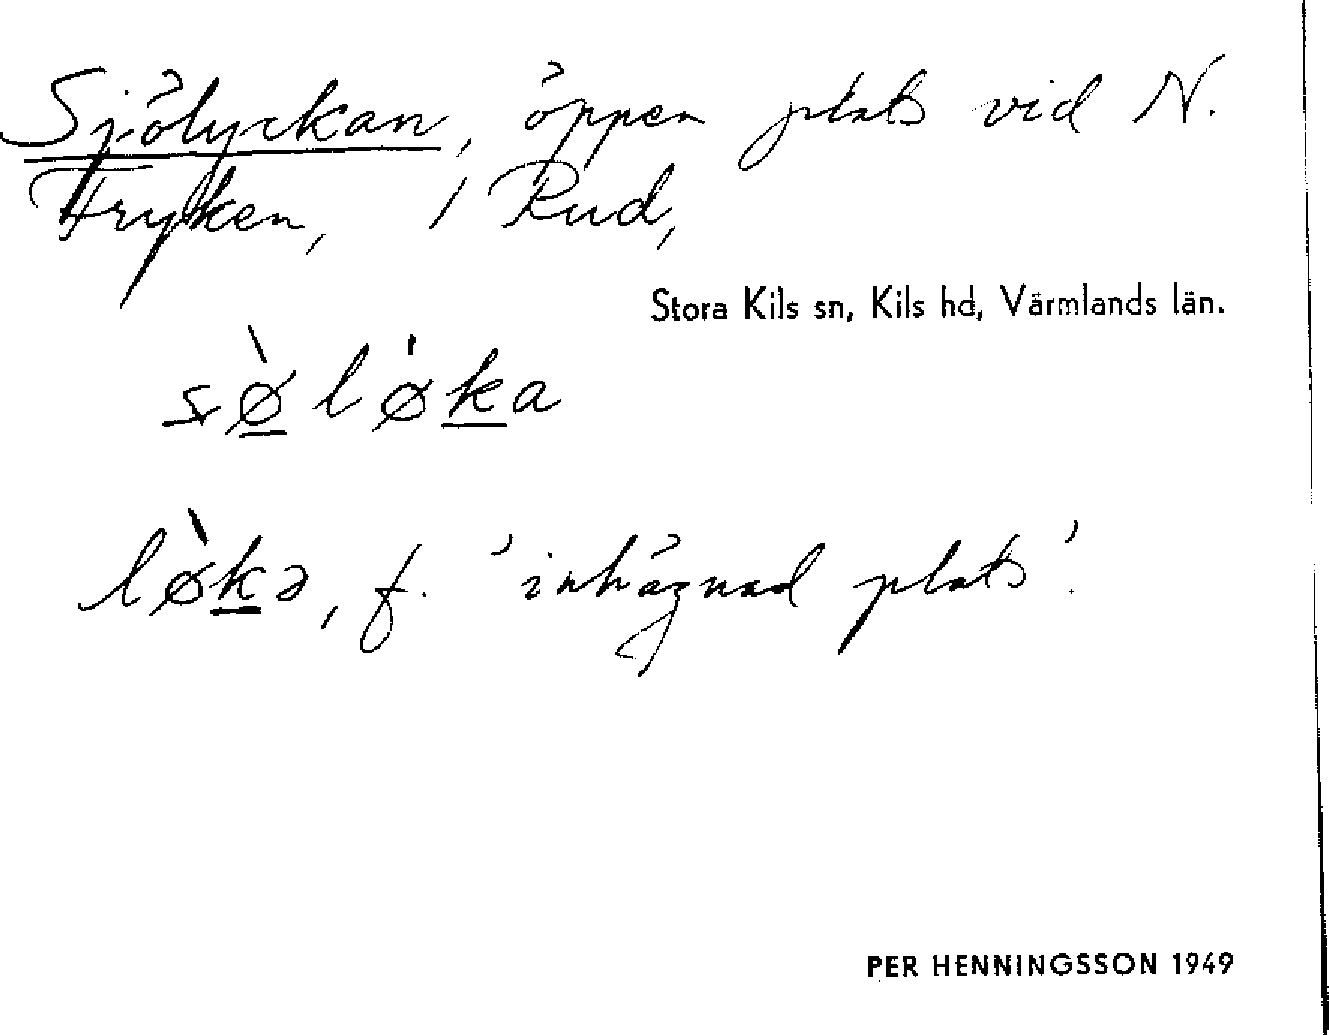 Sjölyckan, öppen plats vid N.
Fryken, i Rud,
Stora Kils sn, Kils hd, Värmlands län.
sø̀løka
lø̀kə, f. 'inhägnad plats'.
PER HENNINGSSON 1949